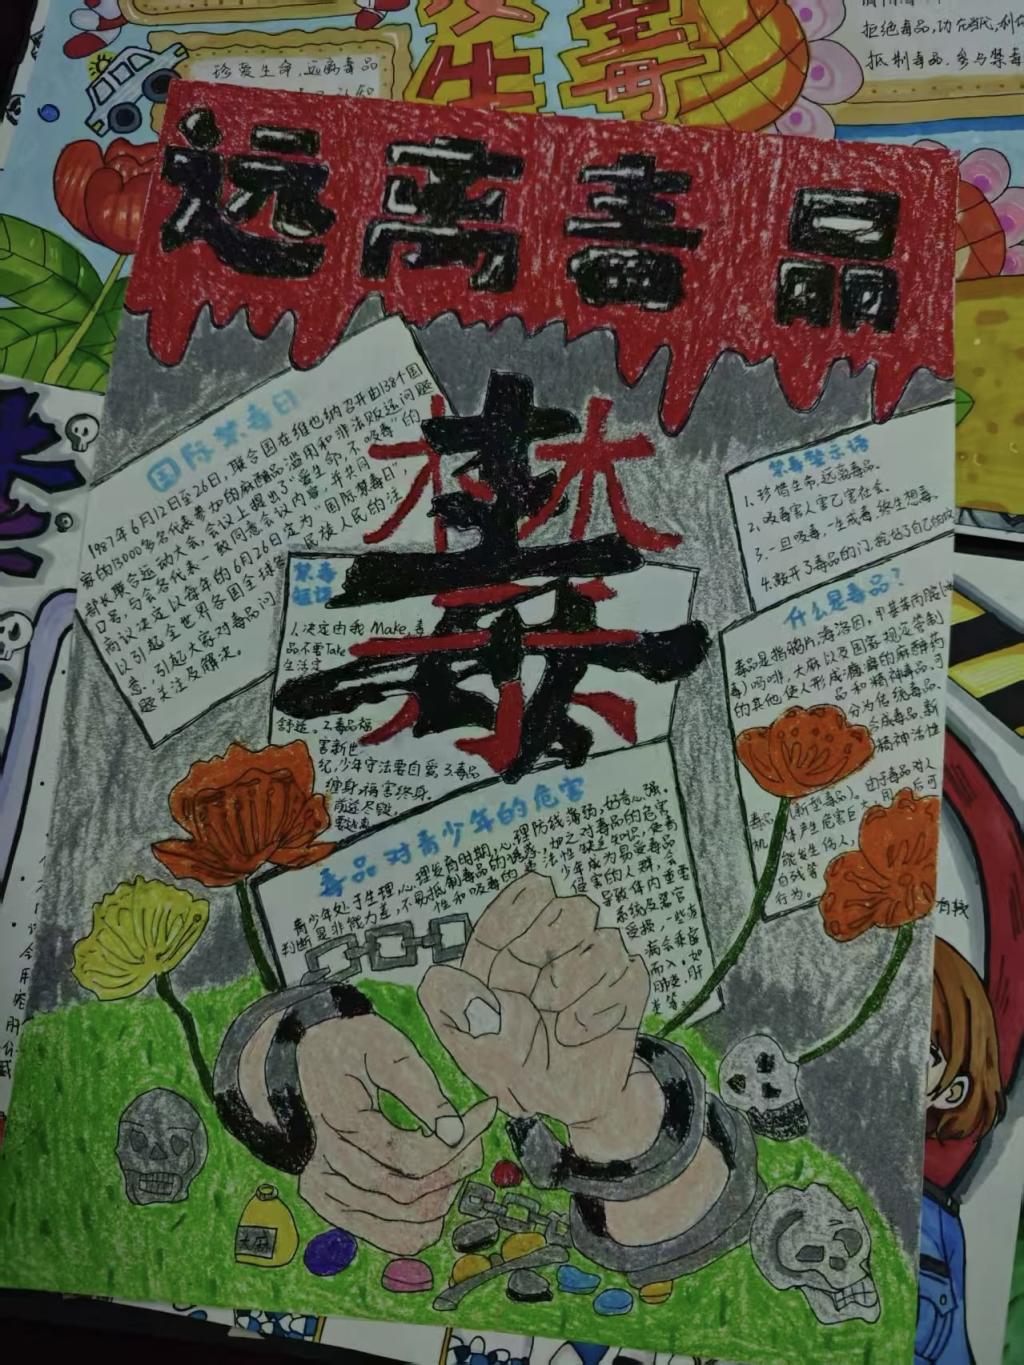 珍爱生命,远离毒品
拒绝毒品,功在当代,利在
抵制毒品,参与禁毒
远离毒品
禁毒
国际禁毒日
1987年6月12日至26日,联合国在维也纳召开由138个国
家的3000多名代表参加的麻醉品滥用和非法贩运问题
部长联合运动大会,会议上提出了"爱生命,不吸毒"的
口号,与会各代表一致同意会议内容,并共同
商议决定以每年的6月26日定为"国际禁毒日"
以引起全世界各国全球各民族人民的注
意,引起大家对毒品问
题关注及解决。
禁毒
短语
1.决定由我Make,毒
品不要Take
生活它
舒适。2.毒品祸
害新世
纪,少年守法要自爱3.毒品
缠身,祸害终身
前途尽毁,
禁毒警示语
1.珍惜生命,远离毒品。
2.吸毒害人害己害社会。
3.一旦吸毒,一生戒毒,终生想毒。
4.敲开了毒品的门,
什么是毒品?
毒品是指鸦片,海洛因,甲基苯丙胺(冰
毒)吗啡,大麻以及国家规定管制
的其他使人形成瘾癖的麻醉药
品和精神毒品,可
分为传统毒品,
合成毒品,新
精神活性
毒品(新型毒品)。由于毒品对人
体产生危害巨大,用后可
能发生伤人,
自残等
行为。
毒品对青少年的危害
青少年处于生理心理发育时期,心理防线薄弱,好奇心强,
判断是非能力差,不易抵制毒品的诱惑,加之对毒品的危害
性和吸毒的违法性缺乏知识,使青
少年成为易受毒品
侵害的人群,会
导致体内重要
系统及器官
受损,一些疾
病会乘虚
而入。如
肺炎,肝
炎等。
大麻